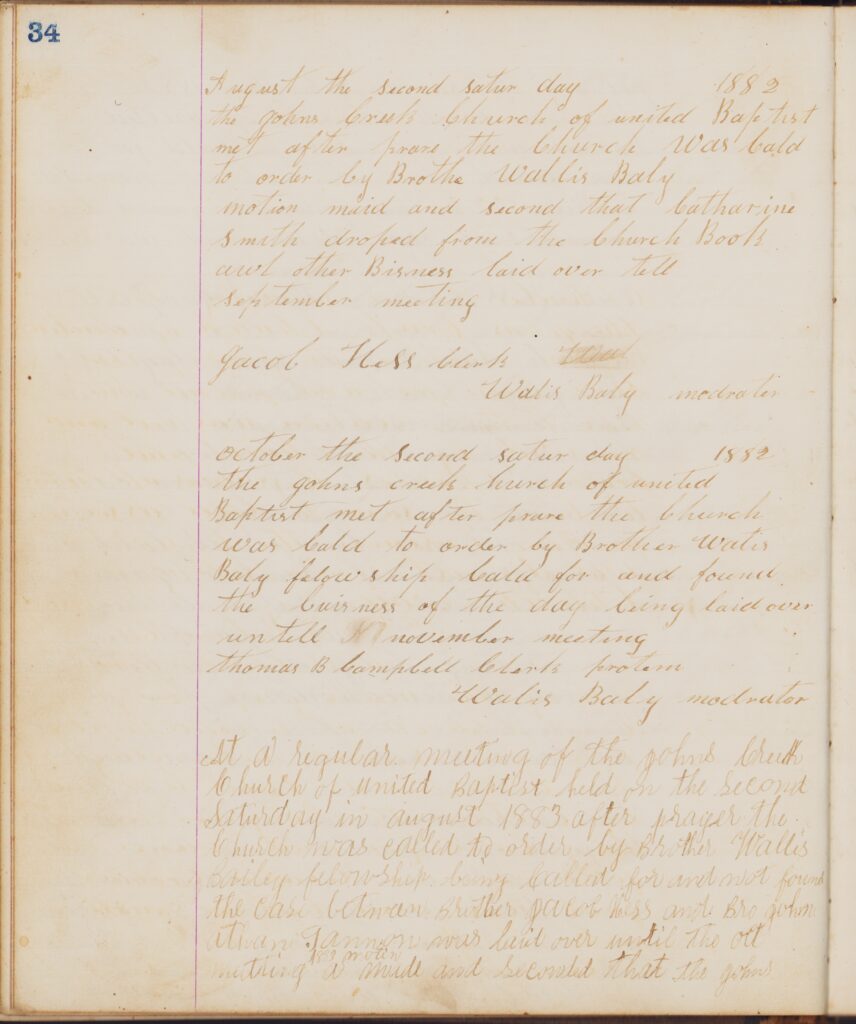 34
August the second satur day 1882
the johns Creek Church of united Baptist
met after prare the Church Was Cald
to order by Brothe Wallis Baly
motion maid and second that Catharine
Smith droped from the Church Book
awl other Bisness laid over tell
september meeting
Jacob Hess Clerk
Walis Baly modrater
October the second satur day 1882
the johns creek hurch of united
Baptist met after prare the Church
Was Cald to order by Brother Walis
Baly felowship Cald for and found
the buisness of the day being laid over
untell november meeting
thomas B Campbell Clerk protem
Walis Baly modrator
At a regular meeting of the johns Creek
Church of united Baptist held on the second
Saturday in august 1883 after prayer the
Church was called to order by Brother Wallis
Bailey felowship being Called for and not found
the case betwean Brother jacob Hess and Bro john
athan Gannon was laid over until the oct
meeting 1883 moten a made and seconded that the johns